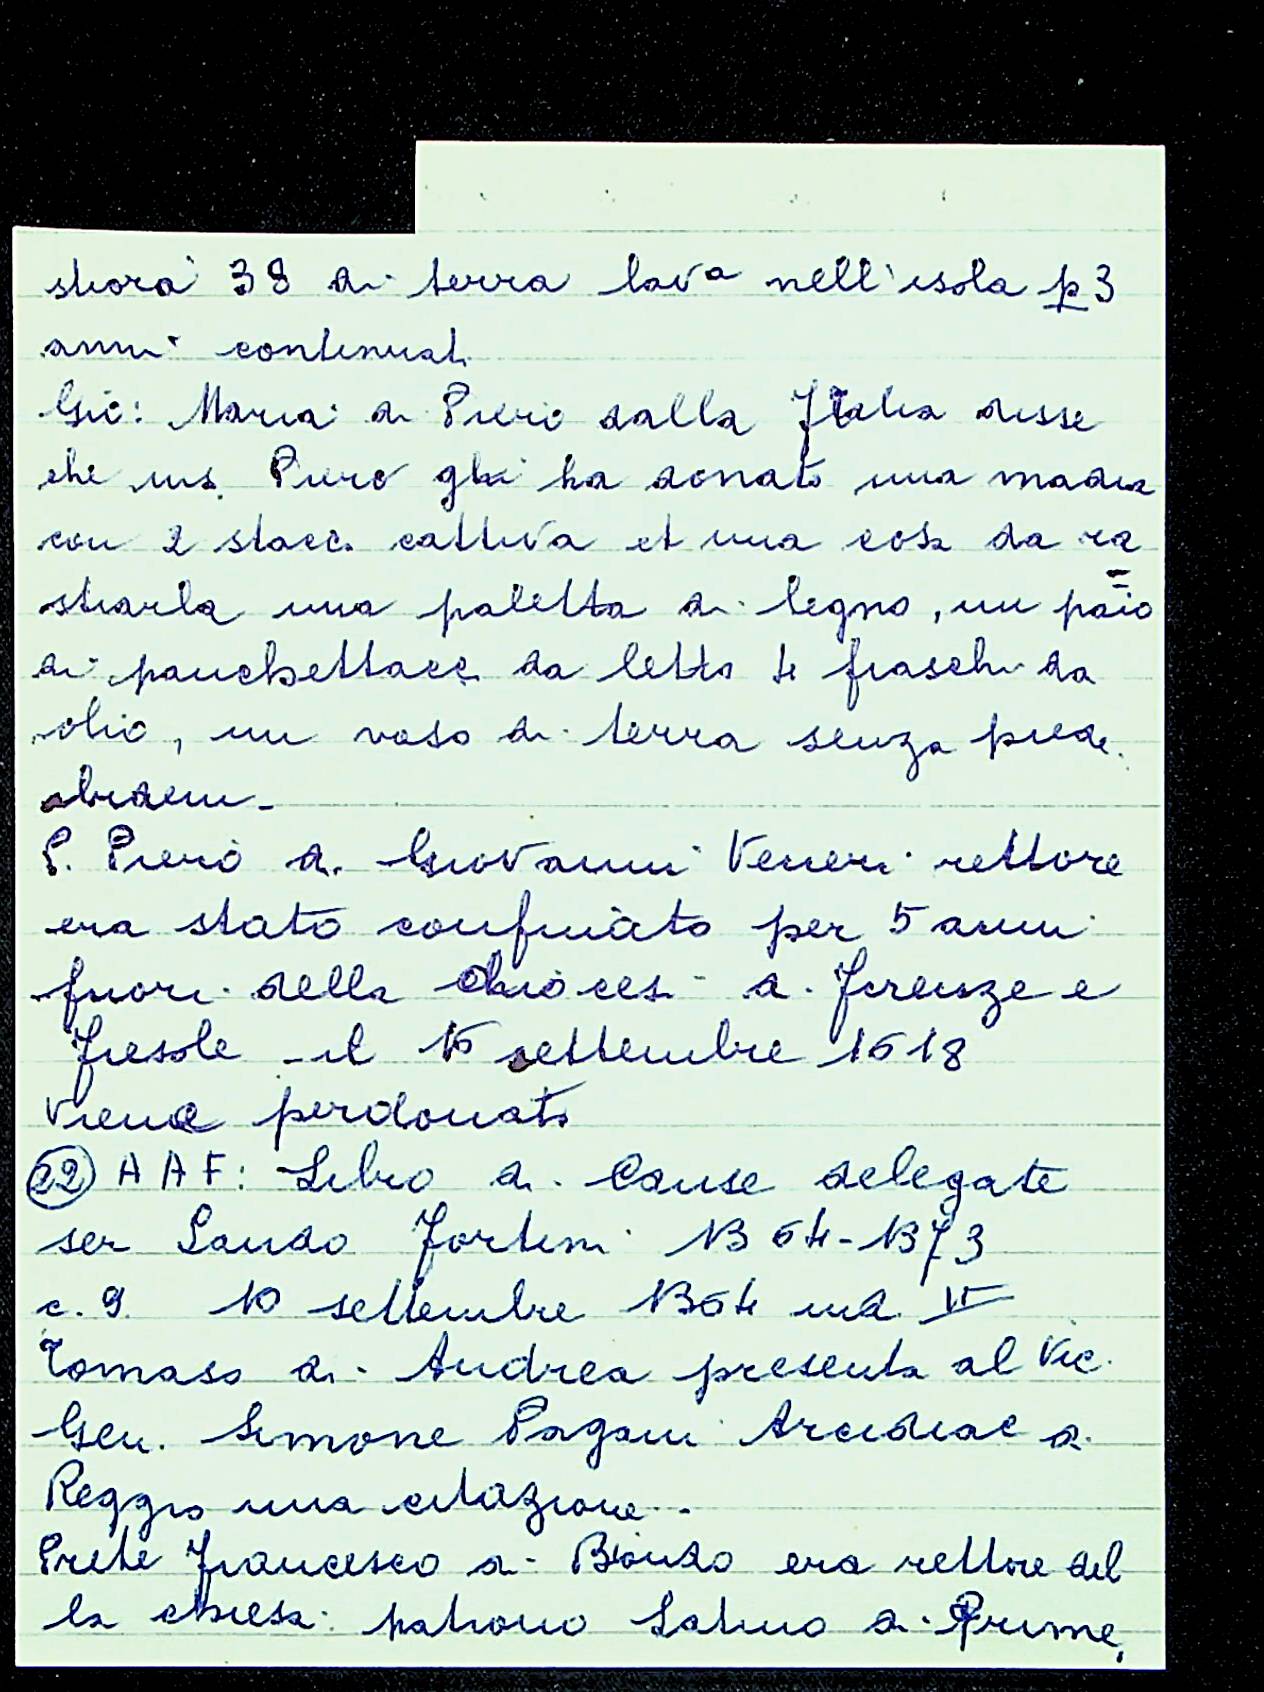 stiora 38 di terra lav.ª nell'isola p 3
anni continuati
Gio: Maria di Piero dalla Italia disse
che ms. Piero gli ha donato una madia
con 2 stacc. cattiva et una cosa da ra
=
stiarla una paletta di legno, un paio
di panchettacc. da letto 4 fiaschi da
olio, un vaso di terra senza piede.
ibidem -
P. Piero di Giovanni Veneri rettore
era stato confinato per 5 anni
fuori della diocesi di Firenze e
Fiesole - il 16 settembre 1618
viene perdonato
(22) AAF: Libro di Cause delegate
ser Lando Fortini 1364-1373
c. 9. 10 settembre 1364 ind. VI
Tomaso di Andrea presenta al Vic.
Gen. Simone Pagani Arcidiac di
Reggio una citazione..
Prete Francesco di Biondo era rettore del
la chiesa: patrono Latino di Prime,